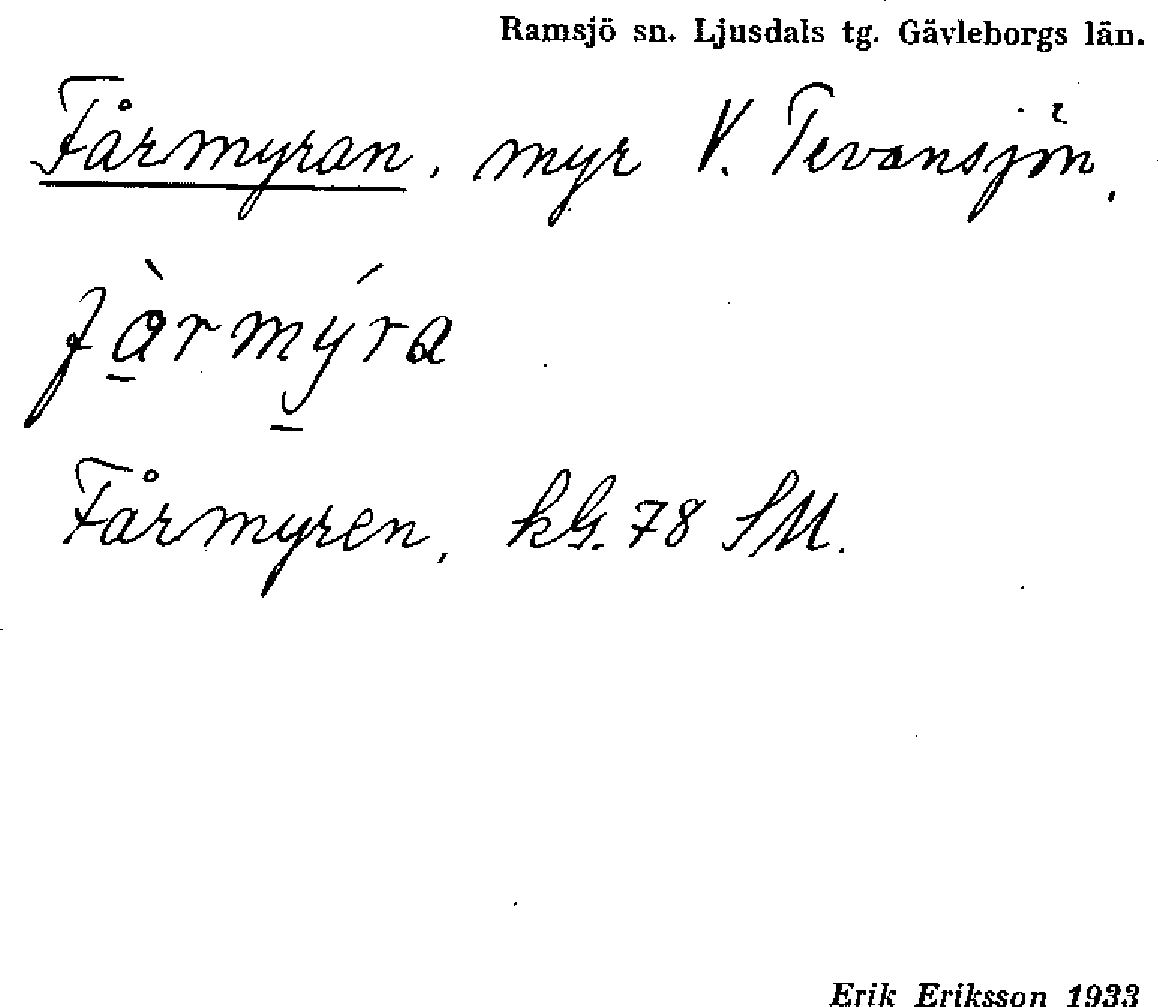 Ramsjö sn. Ljusdals tg. Gävleborgs län.
Fårmyran, myr V. Tevansjön.
fàrmýra
Fårmyren, kG. 78 SM.
Erik Eriksson 1933